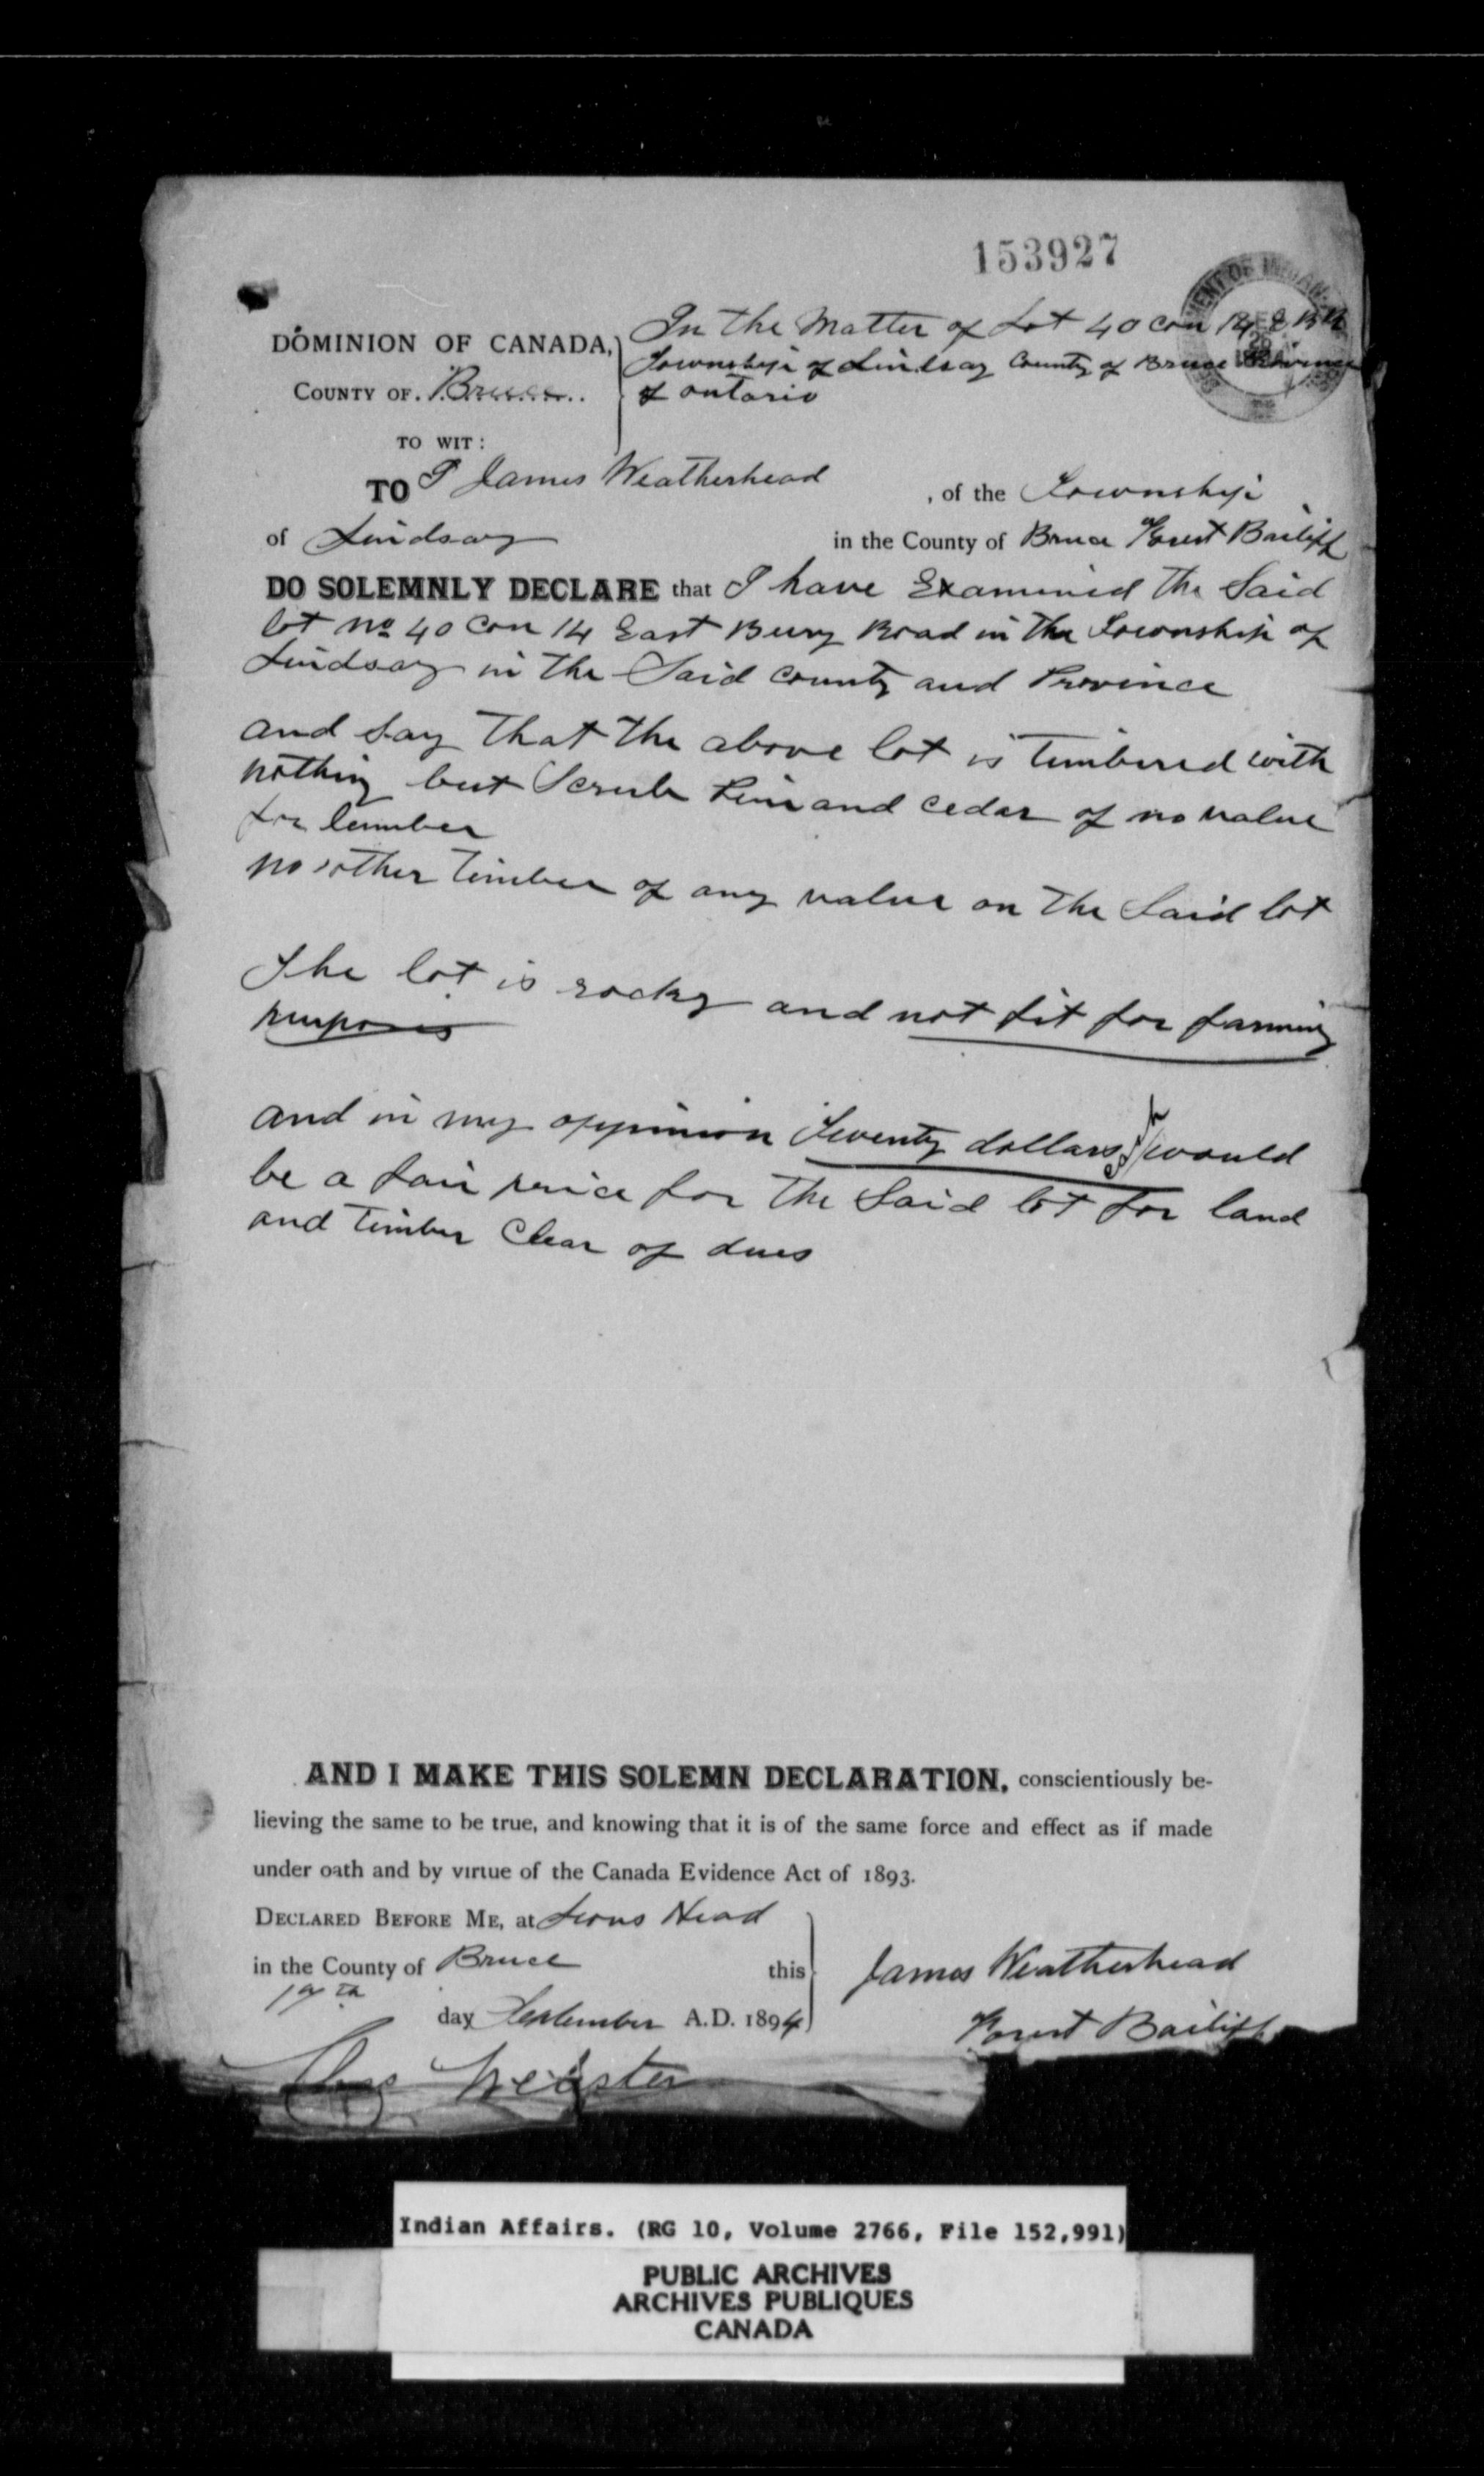 153927
DOMINION OF CANADA,
In the Matter of Lot 40 con 14 E B R
Township of Lindsay County of Bruce Province
COUNTY OF. Bruce
of ontario
TO WIT:
TO I James Weatherhead, of the Township
of Lindsay in the County of Bruce Forest Bailiff
DO SOLEMNLY DECLARE that I have Examined the Said
lot No 40 Con 14 East Bury Road in the Township of
Lindsay in the Said County and Province
and say that the above lot is timbered with
nothing but Scrub Pine and cedar of no value
for lumber
no other timber of any value on the Said lot
The lot is rocky and not fit for farming
purposes
and in my oppinion Twenty dollars would
be a fair price for the Said lot for land
and timber Clear of dues
AND I MAKE THIS SOLEMN DECLARATION, conscientiously be-
lieving the same to be true, and knowing that it is of the same force and effect as if made
under oath and by virtue of the Canada Evidence Act of 1893.
DECLARED BEFORE ME, at Lions Head
in the County of Bruce this
James Weatherhead
day September A.D. 1894
Forest Bailiff
Webster
Indian Affairs. (RG 10, Volume 2766, File 152,991)
PUBLIC ARCHIVES
ARCHIVES PUBLIQUES
CANADA